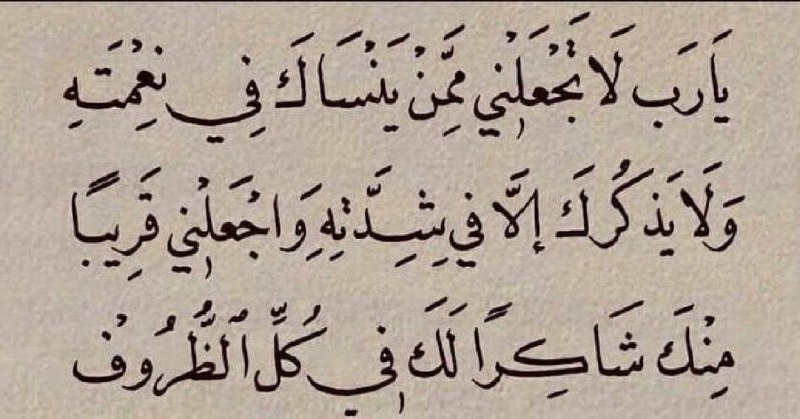 يَارَب لَا تَجْعَلْنِي مِمَّنْ يَنْسَاكَ فِي نِعْمَتِهِ
وَلَا يَذكُرَكَ إِلَّا فِي شِدَّتِهِ وَاجْعَلْنِي قَرِيبًا
مِنْكَ شَاكِرًا لَكَ فِي كُلِّ الظُّرُوفْ